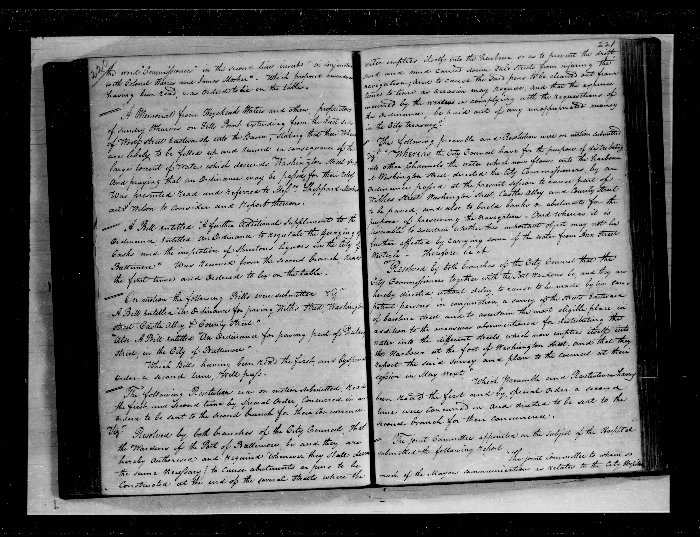 the word "Commissioners" in the second line, insert "in conjunction
with Colonel Harris and James Mosher". Which proposed amendment
having been read, was ordered to lie on the table.
A Memorial from Hezekiah Waters and others, proprietors
of sundry Wharves on Fells Point extending from the East side
of Wolfe street Eastwardly into the Basin, Stating that their Wharves
are liable to be filled up and ruined in consequence of the
large torrent of Water which descends Washington Street &c.
And praying that an Ordinance may be passed for their relief
Was presented read and referred to Messrs Sheppard
and Wilson to consider and report thereon.
A Bill entitled "A further additional Supplement to the
Ordinance entitled An Ordinance to regulate the Guaging of
Casks and the inspection of Spirituous liquors in the City of
Baltimore" Was received from the second branch read
the first time and Ordered to lie on the table.
On motion the following Bills were submitted Vizt
A Bill entitled "An Ordinance for paving Wilks Street, Washington
street Castle Alley & County Street"
Also A Bill entitled "An Ordinance for paving part of
street, in the City of Baltimore"
Which Bills having been read the first, and by special
order a second time, Will pass.
The following Resolution was on motion submitted, Read
the first and Second time by Special Order concurred in and
ordered to be sent to the second branch for their concurrence.
Vizt Resolved by both branches of the City Council, That
the Wardens of the Port of Baltimore be and they are
hereby authorized and required whenever they shall deem
the same necessary to cause abutments or piers to be
constructed at the end of the several streets where the
221
water empties itself into the harbour so as to prevent the dirt
and mud carried down said streets from injuring the
navigation; And to cause the said piers to be cleaned out from
time to time as occasion may require, and that the expence
incurred by the wardens in complying with the requisitions of
the Ordinance, be paid out of any unappropriated money
in the City treasury."
The following preamble and Resolution were on motion submitted
Vizt "Whereas the City Council have for the purpose of
into other Channels the water which now flows into the harbour
at Washington street, directed the City Commissioners, by an
Ordinance passed at the present session to cause part of
Wilkes Street, Washington Street Castle Alley and County Street
to be paved, and also to build banks or abutments for the
purpose of preserving the Navigation. And whereas it is
desirable to ascertain whether this important object may not be
further effected by carrying some of the water from Ann Street
Therefore be it
Resolved by both branches of the City Council that the
City Commissioners together with the Port Wardens be, and they are
hereby directed without delay to cause to be made by two com-
petent persons in conjunction, a survey of the streets Eastward
of Caroline street and to ascertain the most eligible place in
addition to the measures abovementioned for distributing the
water into the different streets which now empties itself into
the Harbour at the foot of Washington street, and that they
report the said survey and plan to the Council at their
session in May next."
Which Preamble and Resolution having
been read the first and by special order a second
time were concurred in and ordered to be sent to the
second branch for their concurrence.
The Joint Committee appointed on the subject of the Hospital
submitted the following report
"The joint committee to whom so
much of the Mayors communication as relates to the City Hospital